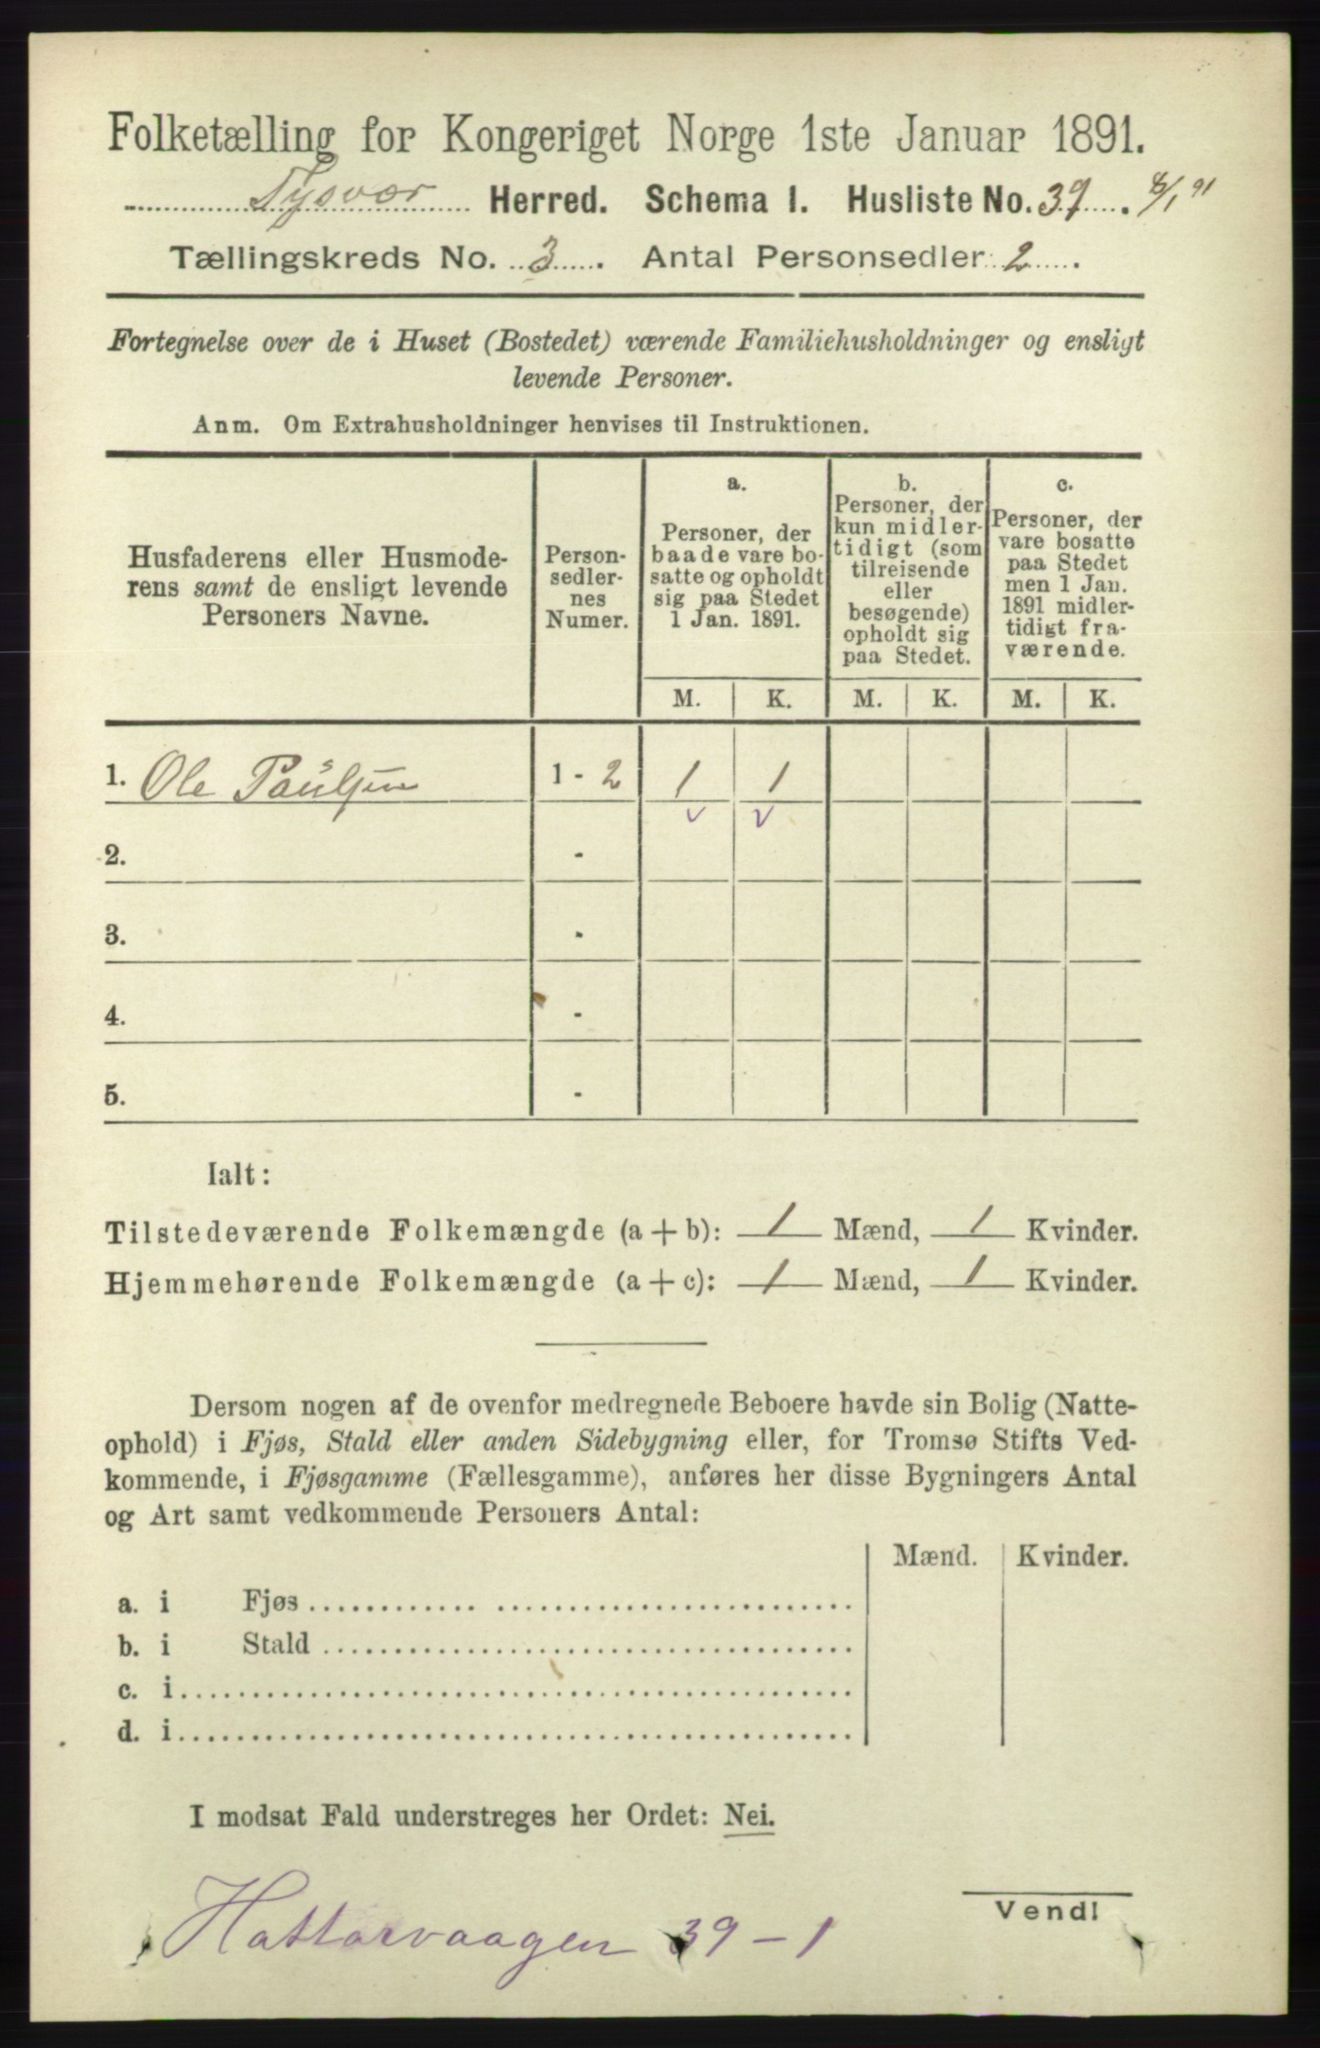 Folketælling for Kongeriget Norge 1ste Januar 1891.
Tysvær Herred. Schema I. Husliste No. 39.
Tællingskreds No. 3. Antal Personsedler 2.
Fortegnelse over de i Huset (Bostedet) værende Familiehusholdninger og ensligt
levende Personer.
Anm. Om Extrahusholdninger henvises til Instruktionen.
Husfaderens eller Husmode-
rens samt de ensligt levende
Personers Navne.
Person-
sedler-
nes
Numer.
a.
Personer, der
baade vare bo-
satte og opholdt
sig paa Stedet
1 Jan. 1891.
b.
Personer, der
kun midler-
tidigt (som
tilreisende
eller
besøgende)
opholdt sig
paa Stedet.
c.
Personer, der
vare bosatte
paa Stedet
men 1 Jan.
1891 midler-
tidigt fra-
værende.
M. K. M. K. M. K.
1. Ole Paulsen 1 - 2 1 1
2. -
3. -
4. -
5. -
Ialt:
Tilstedeværende Folkemængde (a + b): 1 Mænd, 1 Kvinder.
Hjemmehørende Folkemængde (a + c): 1 Mænd, 1 Kvinder.
Dersom nogen af de ovenfor medregnede Beboere havde sin Bolig (Natte-
ophold) i Fjøs, Stald eller anden Sidebygning eller, for Tromsø Stifts Ved-
kommende, i Fjøsgamme (Fællesgamme), anføres her disse Bygningers Antal
og Art samt vedkommende Personers Antal:
Mænd. Kvinder.
a. i Fjøs
b. i Stald
c. i
d. i
I modsat Fald understreges her Ordet: Nei.
Vend!
Hattarvaagen 39 - 1